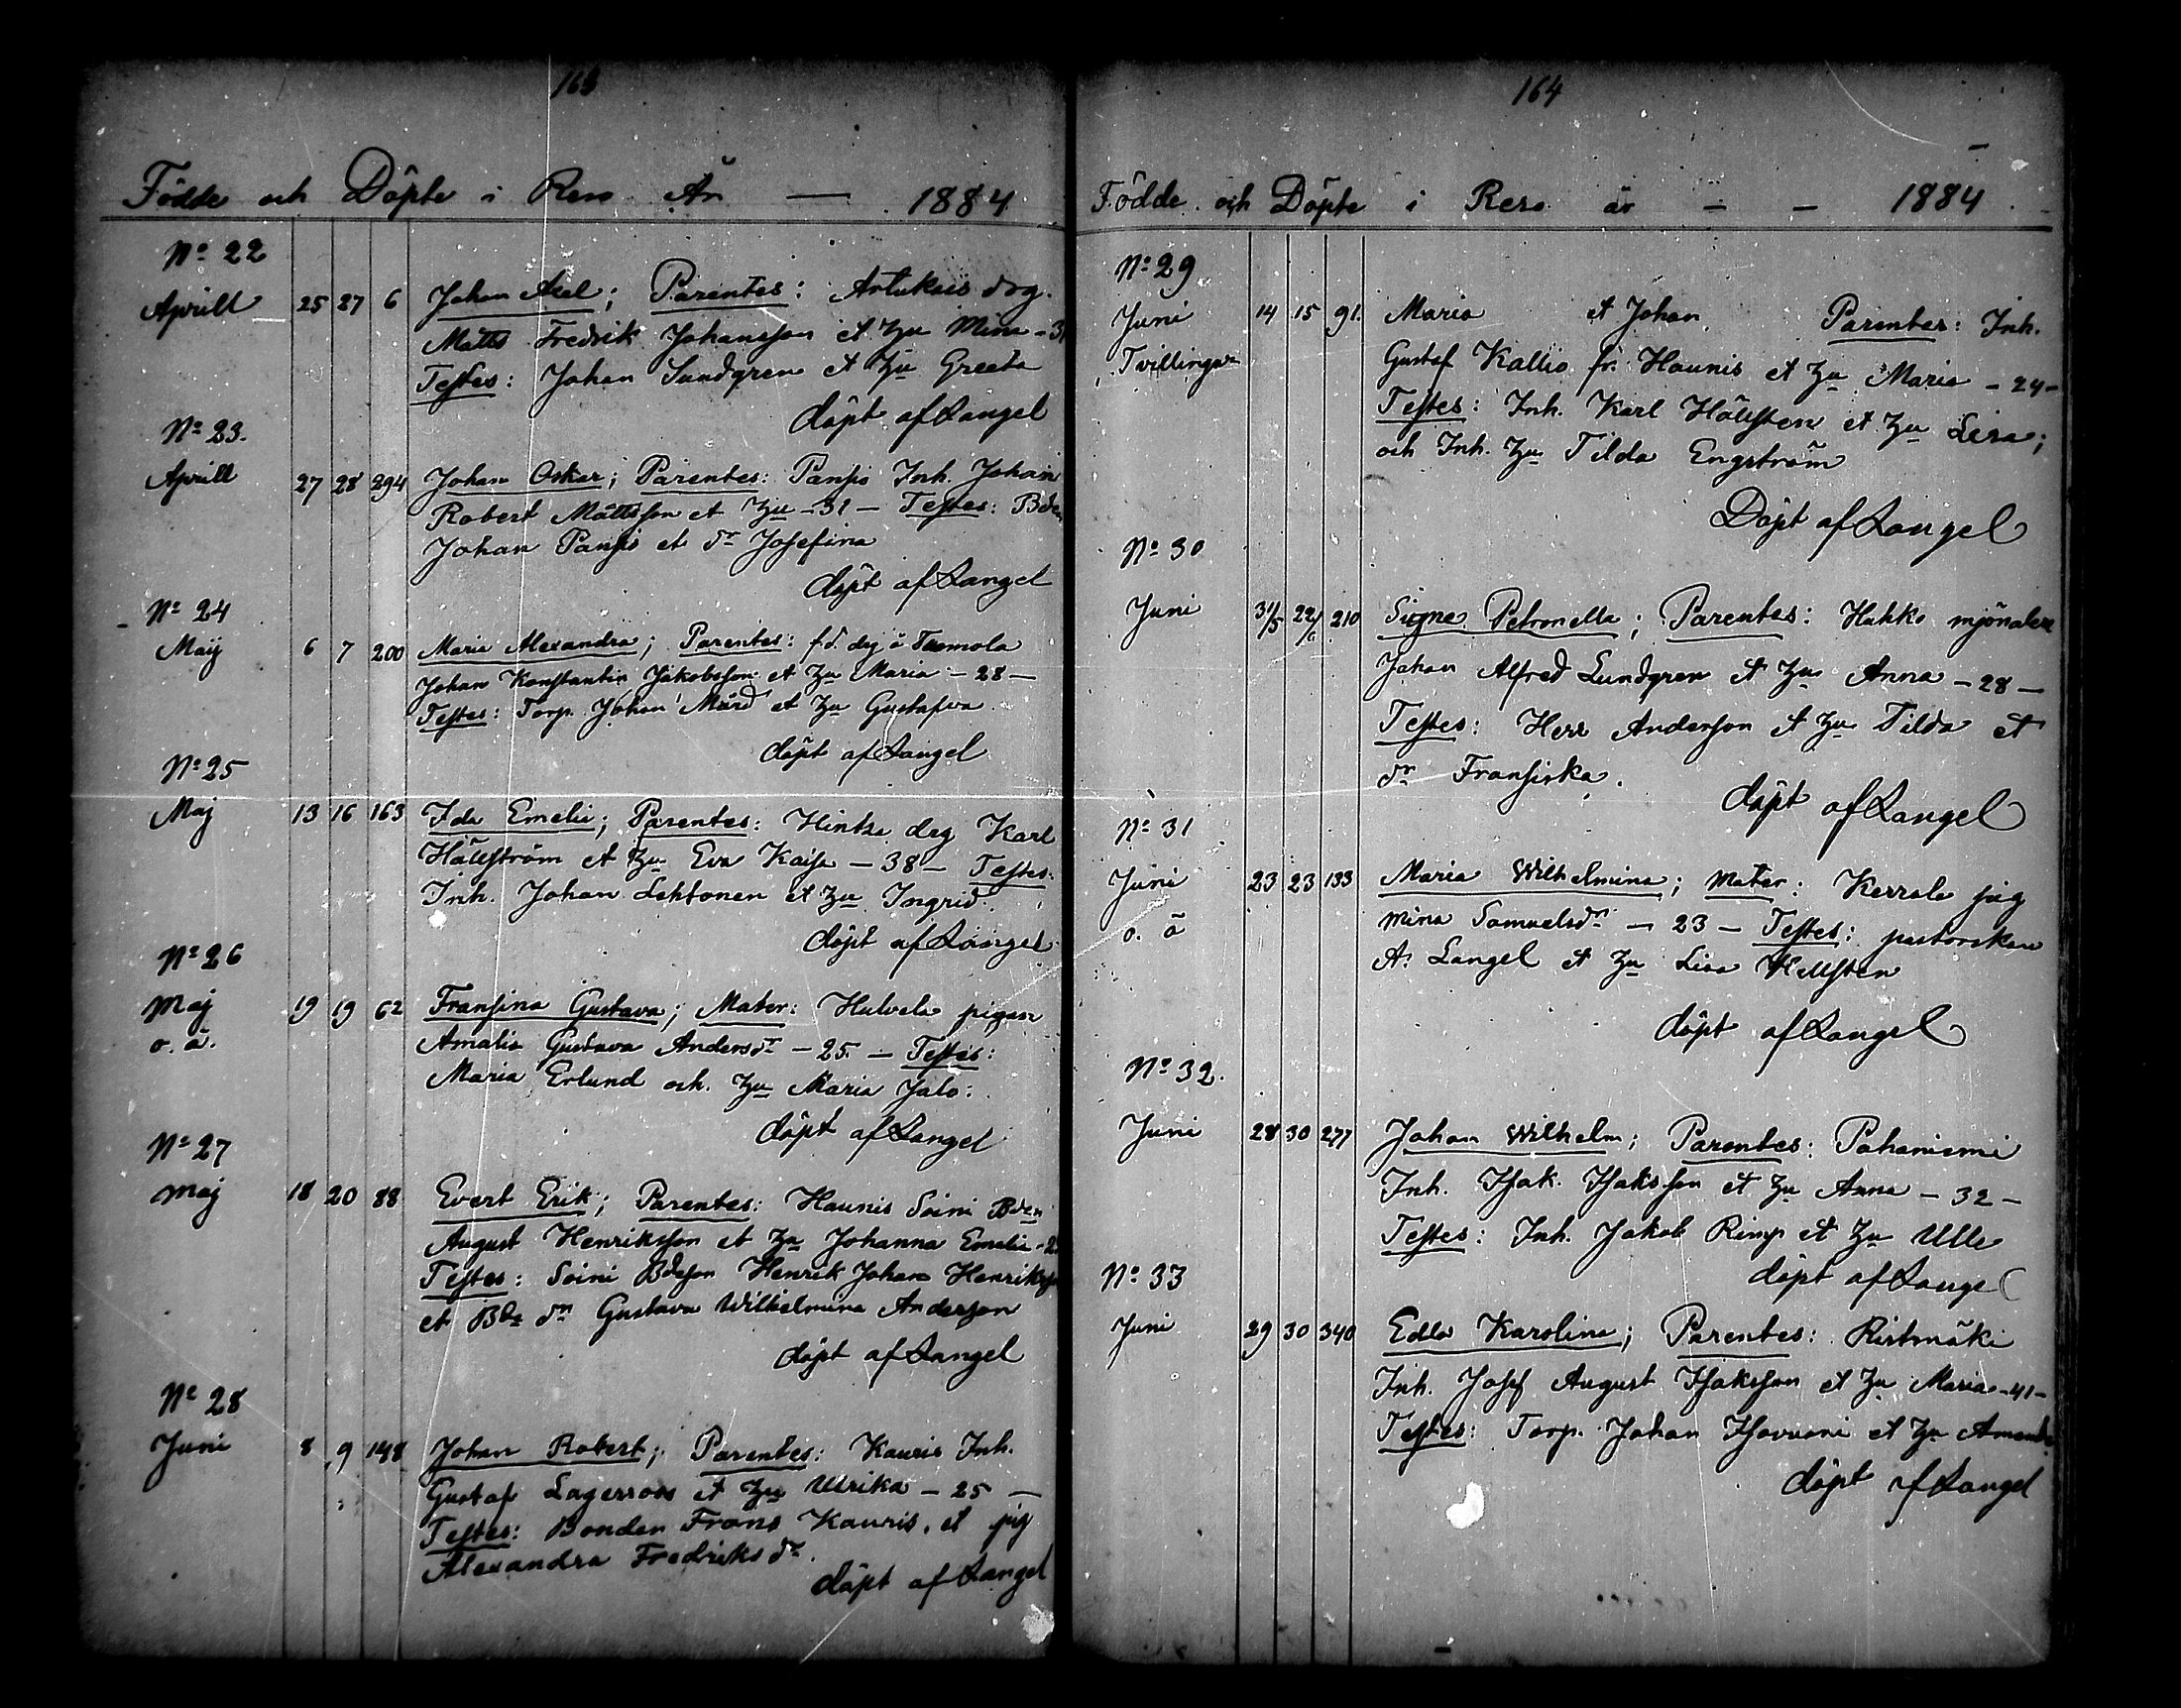 163
Födde och Döpte i Reso År — 1884
No 22
Aprill 25 27 6 Johan Axel; Parentes: Artukais drg.
Matts Fredrik Johansson et Hu Mina - 3
Testes: Johan Sundgren et Hu Greeta
döpt af Langel
No 23.
Aprill 27 28 294 Johan Oskar; Parentes: Pansio Inh. Johan
Robert Mattsson et Hu - 31 - Testes: Bden
Johan Pansio et dr Josefina
döpt af Langel
No 24
Maij 6 7 200 Maria Alexandra; Parentes: f.d. drg å Tammola
Johan Konstantin Jakobsson et Hu Maria - 28 -
Testes: Torp. Johan Mård et Hu Gustafva
döpt af Langel
No 25
Maj 13 16 163 Ida Emelie; Parentes: Hintsa drg Karl
Hällström et Hu Eva Kaisa - 38 - Testes:
Inh. Johan Lehtonen et Hu Ingrid.
döpt af Langel
No 26
Maj 19 19 62 Fransina Gustava; Mater: Hulvela pigan
o. ä. Amalia Gustava Andersdr - 25. - Testes:
Maria Erlund och Hu Maria Jalo:
döpt af Langel
No 27
Maj 18 20 88 Evert Erik; Parentes: Haunis Soini Bden
August Henriksson et Hu Johanna Emelie - 2
Testes: Soini Bdeson Henrik Johan Henriksson
et Bde dn Gustava Wilhelmina Anderson
döpt af Langel
No 28
Juni 8 9 148 Johan Robert; Parentes: Kauris Inh.
Gustaf Lagerroos et Hu Ulrika - 25 -
Testes: Bonden Frans Kauris, et pig
Alexandra Fredriksdr.
döpt af Langel
164
Födde och Döpte i Reso år - - 1884
No 29
Juni 14 15 91. Maria et Johan Parentes: Inh.
Tvillingar Gustaf Kallio fr. Haunis et Hu Maria - 24 -
Testes: Inh. Karl Hällsten et Hu Lisa;
och Inh. Hu Tilda Engström
Döpt af Langel
No 30
Juni 31/5 22/6 210 Signe Petronella; Parentes: Hukko mjönalere
Johan Alfred Lundgren et Hu Anna - 28 -
Testes: Herr Anderson et Hu Tilda et
dr Fransiska.
döpt af Langel
No 31
Juni 23 23 133 Maria Wilhelmina; Mater: Kerrola pig
o. ä Mina Samuelsdr - 23 - Testes: pastorskan
A. Langel et Hu Lisa Hellsten
döpt af Langel
No 32.
Juni 28 30 277 Johan Wilhelm; Parentes: Pahaniemi
Inh. Isak Isaksson et Hu Anna - 32 -
Testes: Inh. Jakob Rimp et Hu Ulla
döpt af Langel
No 33
Juni 29 30 340 Edla Karolina; Parentes: Ristmäki
Inh. Josef August Isaksson et Hu Maria - 41 -
Testes: Torp. Johan Isovuori et Hu Amanda
döpt af Langel